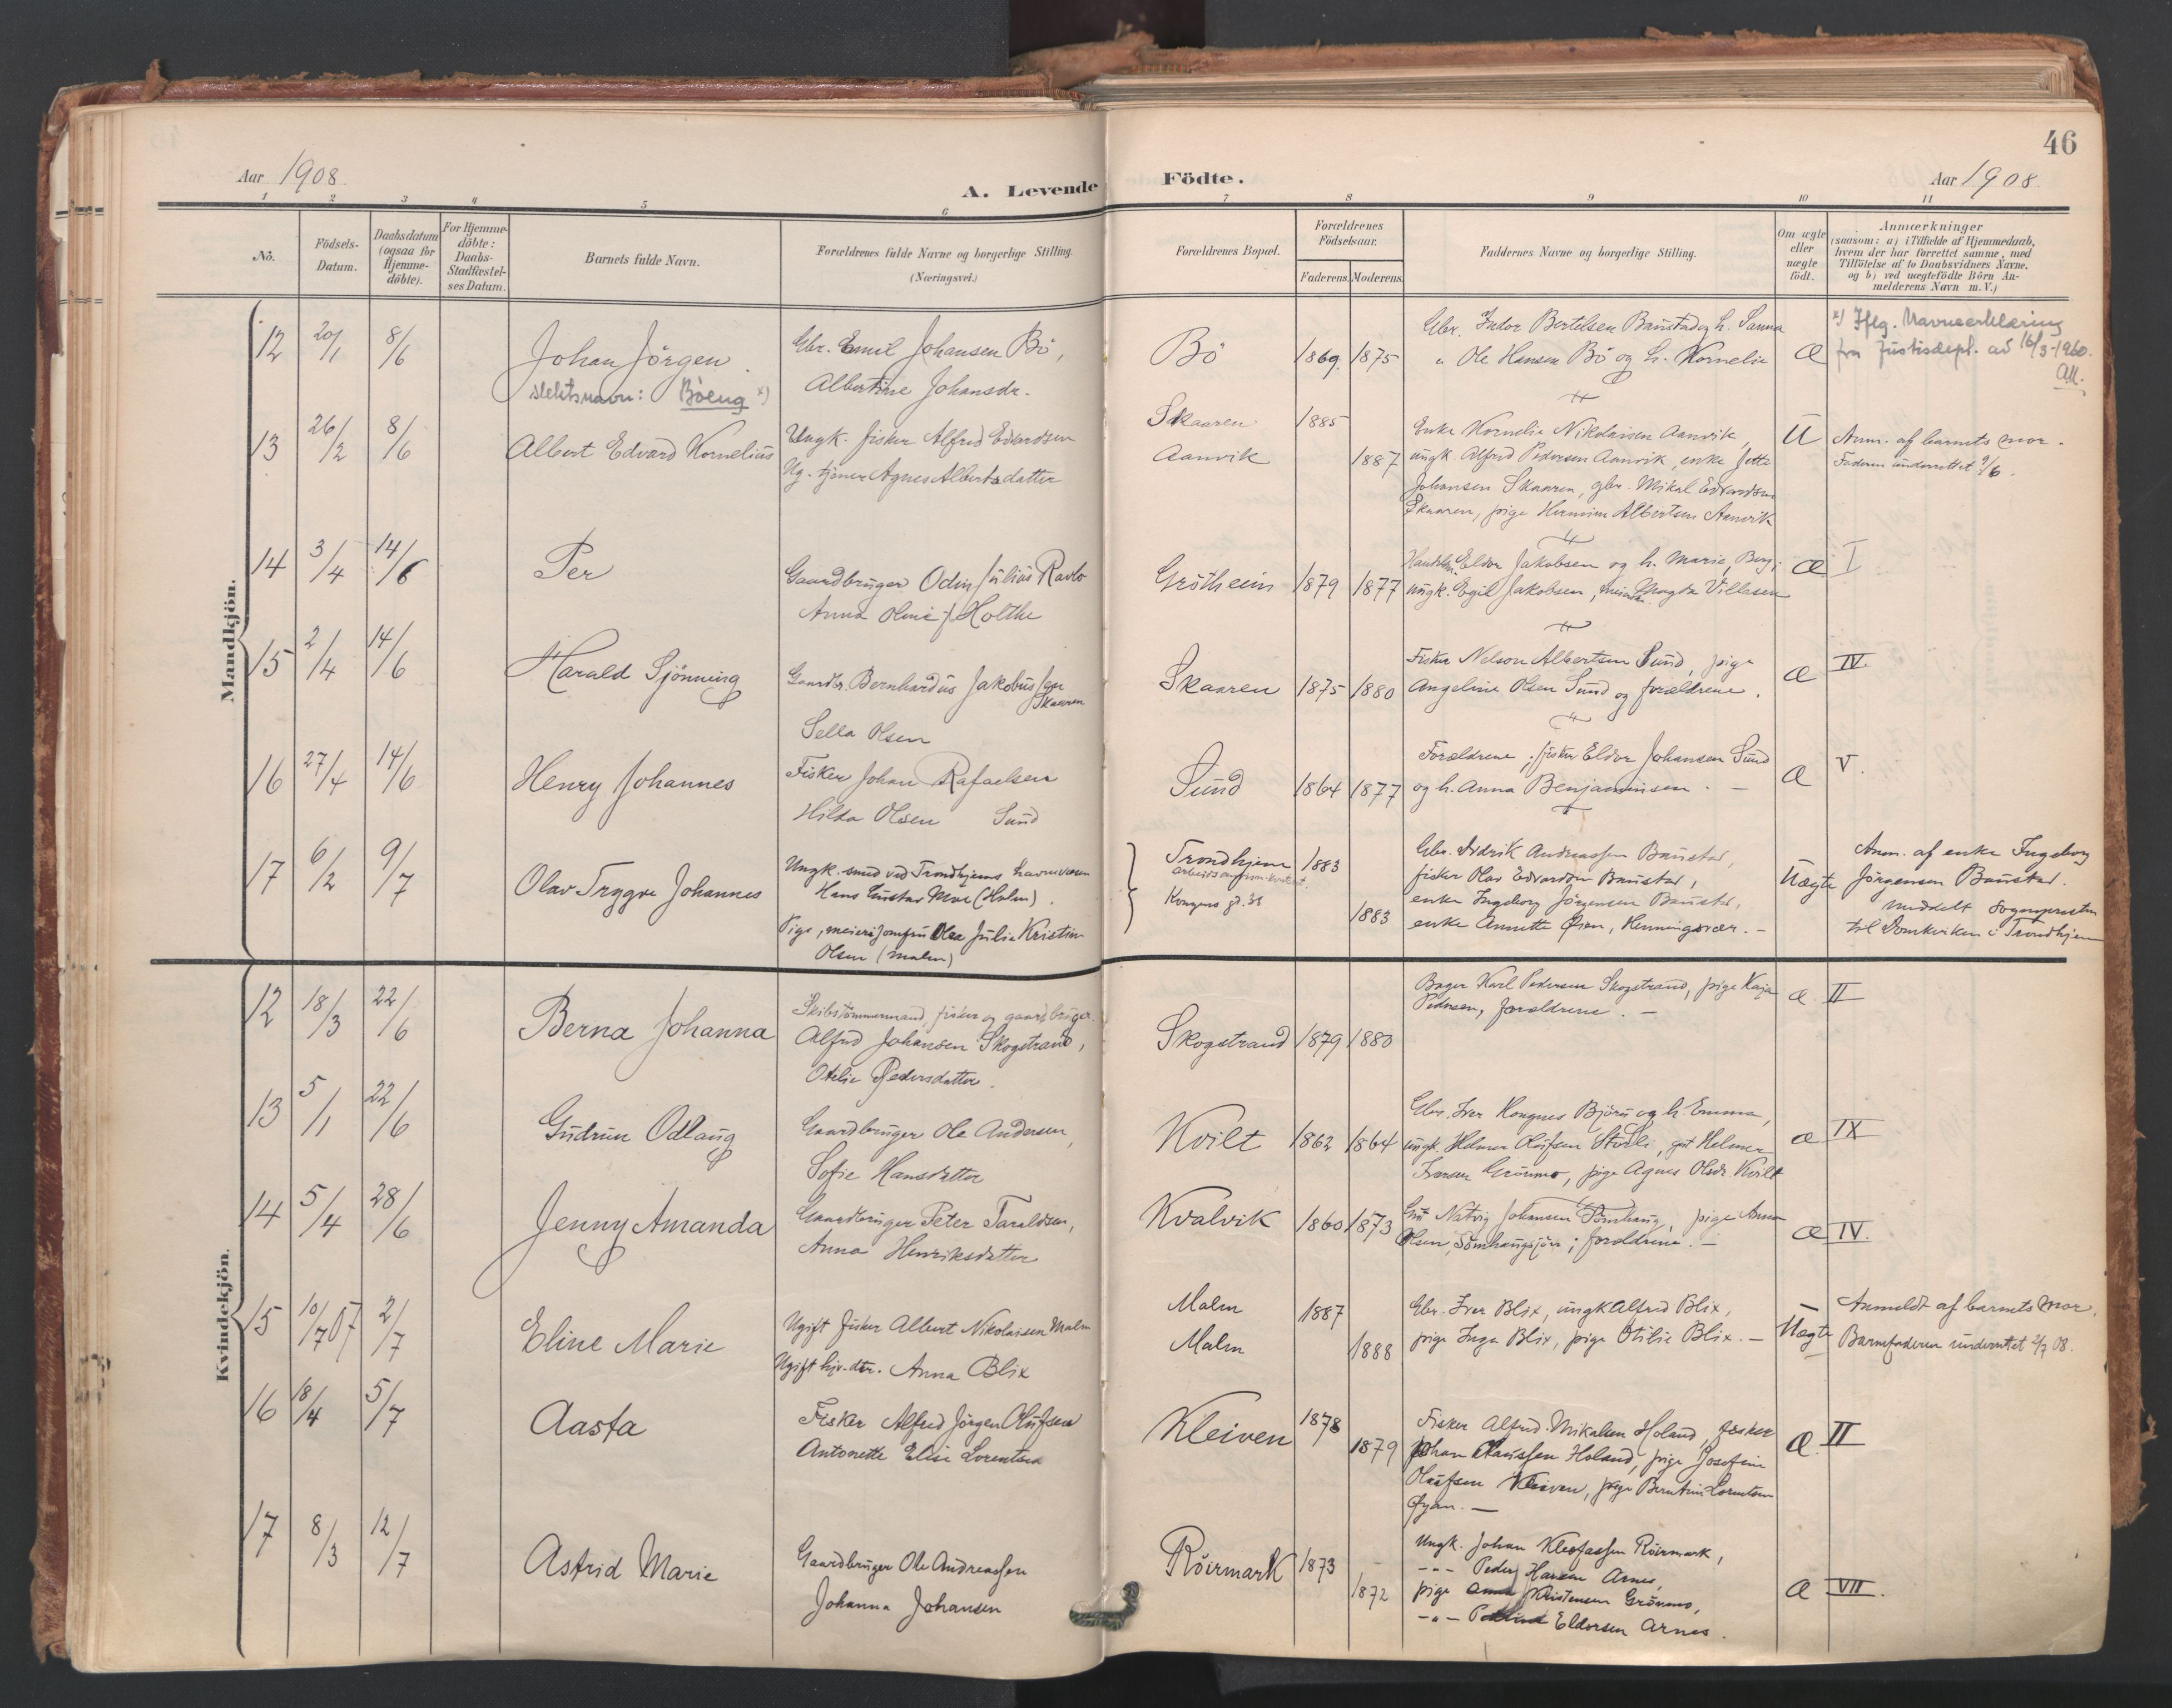 46
Aar 1908.
A. Levende Födte.
Aar 1908.
1 2 3 4 5 6 7 8 9 10 11
No.
Födsels-Datum.
Daabsdatum (ogsaa for Hjemme-döbte).
For Hjemme-döbte: Daabs-Stadfæstel-ses Datum.
Barnets fulde Navn.
Forældrenes fulde Navne og borgerlige Stilling. (Næringsvei.)
Forældrenes Bopæl.
Forældrenes Födselsaar.
Faderens. Moderens.
Faddernes Navne og borgerlige Stilling.
Om ægte eller uægte födt.
Anmærkninger
(saasom: a) i Tilfælde af Hjemmedaab, hvem der har forrettet samme, med Tilföielse af to Daabsvidners Navne, og b) ved uægtefödte Börn Anmelderens Navn m. V.)
Mandkjön.
12 20/1 8/6
Johan Jörgen.
slektsnavn: Böeng x)
Gbr. Emil Johansen Bö,
Albertine Johansdr.
Bö 1869. 1875
Gbr. Indor Bertelsen Baustad og h. Sanna
" Ole Hansen Bö og h. Kornelie
Æ
x) Iflg. Navneerklæring
fra Justisdept. av 16/3-1960.
13 26/2 8/6
Albert Edvard Kornelius
Ungk. fisker Alfred Edvardsen
Ug. tjener Agnes Albertsdatter
Skaaren 1885
Aanvik 1887
Enke Kornelie Nikolaisen Aanvik,
ungk. Alfred Pedersen Aanvik, enke Jette
Johansen Skaaren, gbr. Mikal Edvardsen
Skaaren, pige Albertsen Aanvik
U
Anm. af barnets mor.
Faderen underrettet 9/6.
14 3/4 14/6
Per
Gaardbruger Odin Julius Ravlo
Anna Oline f. Holthe
Grötheim 1879 1877
Eldor Jakobsen og h. Marie, Berg;
ungk. Egil Jakobsen, Magda Villasen
Æ I
15 2/4 14/6
Harald Sjönning
Gaardbr. Bernhardus Jakobus
Skaaren
Sella Olsen
Skaaren 1875 1880
Fisker Nelson Albertsen Sund, pige
Angeline Olsen Sund og forældrene.
Æ IV.
16 27/4 14/6
Henry Johannes
Fisker Johan Rafaelsen
Hilda Olsen Sund
Sund 1864 1877
Forældrene; fisker Eldor Johansen Sund
og h. Anna Benjaminsen. –
Æ V.
17 6/2 9/7
Olav Tryggve Johannes
Ungk. smed ved Trondhjems havnevæsen
Hans Gustav Moe (Holm).
Pige, meierijomfru Olea Julie Kristine
Olsen (Malm)
Trondhjem 1883
Kongens gt. 38
1883
Gbr. Didrik Andreassen Baustad,
fisker Olav Edvardsen Baustad,
enke Ingeborg Jörgensen Baustad,
enke Annette Öien, Henningsvær. –
Uægte
Anm. af enke Ingeborg
Jörgensen Baustad.
Meddelt Sogneprester
til Domkirken i Trondhjem
Kvindekjön.
12 18/3 22/6
Berna Johanna
Skibstömmermand fisker og gaardbruger
Alfred Johansen Skogstrand,
Otelie Pedersdatter.
Skogstrand 1879 1880
Bager Karl Pedersen Skogstrand, pige Kaja
Pedersen, forældrene. –
Æ. II
13 5/1 22/6
Gudrun Odlaug
Gaardbruger Ole Andersen,
Sofie Hansdatter
Kvilt 1862 1864
Gbr. Iver Kongnes Björnö og h. Emma,
ungk. Helmer Olufsen Stodli, gut Helmer
Iversen Grönmo, pige Agnes Olsdr. Kvilt
Æ IX
14 5/4 28/6
Jenny Amanda
Gaardbruger Peter Taraldsen,
Anna Henriksdatter
Kvalvik 1860 1873
Gut Natvig Johansen Sömhaug, pige Anna
Olsen, Sömhaugsjöen; forældrene. –
Æ IV.
15 10/7 07 2/7
Eline Marie
Ugift fisker Albert Nikolaisen Malm
Ugift hjv. dtr. Anna Blix
Malm 1887
Malm 1888
Gbr. Iver Blix, ungk Alfred Blix,
pige Inga Blix, pige Otilie Blix. –
Uægte
Anmeldt af barnets mor.
Barnefaderen underrettet 2/7 08.
16 18/4 5/7
Aasta
Fisker Alfred Jörgen Olufsen
Antonette Elise Lorentsen
Kleiven 1878
1879
Fisker Alfred Mikalsen Holand, fisker
Johan Claussen Holand, pige Josefine
Olufsen Kleiven, pige Berntine Lorentsen
Öyan. –
Æ. II
17 8/3 12/7
Astrid Marie
Gaardbruger Ole Andreassen
Johanna Johansen
Röirmark 1873
1872
Ungk. Johan Kleofassen Röirmark,
–"– Peder Hansen Arnes,
pige Anna Kristensen Grönmo,
–"– Eldorsen Arnes.
Æ VII.